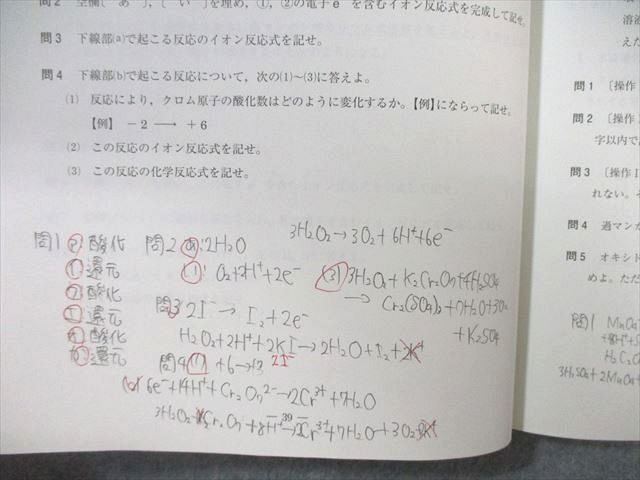 問2 空欄[ あ ],[ い ]を埋め,①,②の電子e⁻を含むイオン反応式を完成して記せ。
問3 下線部(a)で起こる反応のイオン反応式を記せ。
問4 下線部(b)で起こる反応について,次の(1)〜(3)に答えよ。
(1) 反応により,クロム原子の酸化数はどのように変化するか。【例】にならって記せ。
【例】 −2 ⟶ +6
(2) この反応のイオン反応式を記せ。
(3) この反応の化学反応式を記せ。
問1 酸化
還元
酸化
還元
酸化
還元
問2 あ:2H₂O
O₂+2H⁺+2e⁻
問3 2I⁻→I₂+2e⁻
H₂O₂+2H⁺+2KI→2H₂O+I₂+2K⁺
2I⁻
問4(1) +6→+3
6e⁻+14H⁺+Cr₂O₇²⁻→2Cr³⁺+7H₂O
3H₂O₂→3O₂+6H⁺+6e⁻
(3) 3H₂O₂+K₂Cr₂O₇+4H₂SO₄
→Cr₂(SO₄)₃+7H₂O+3O₂
+K₂SO₄
39
問1 〔操作
問2 〔操作
字以内で
問3 〔操作I
れない。
問4 過マンガ
問5 オキシド
めよ。ただ
問1